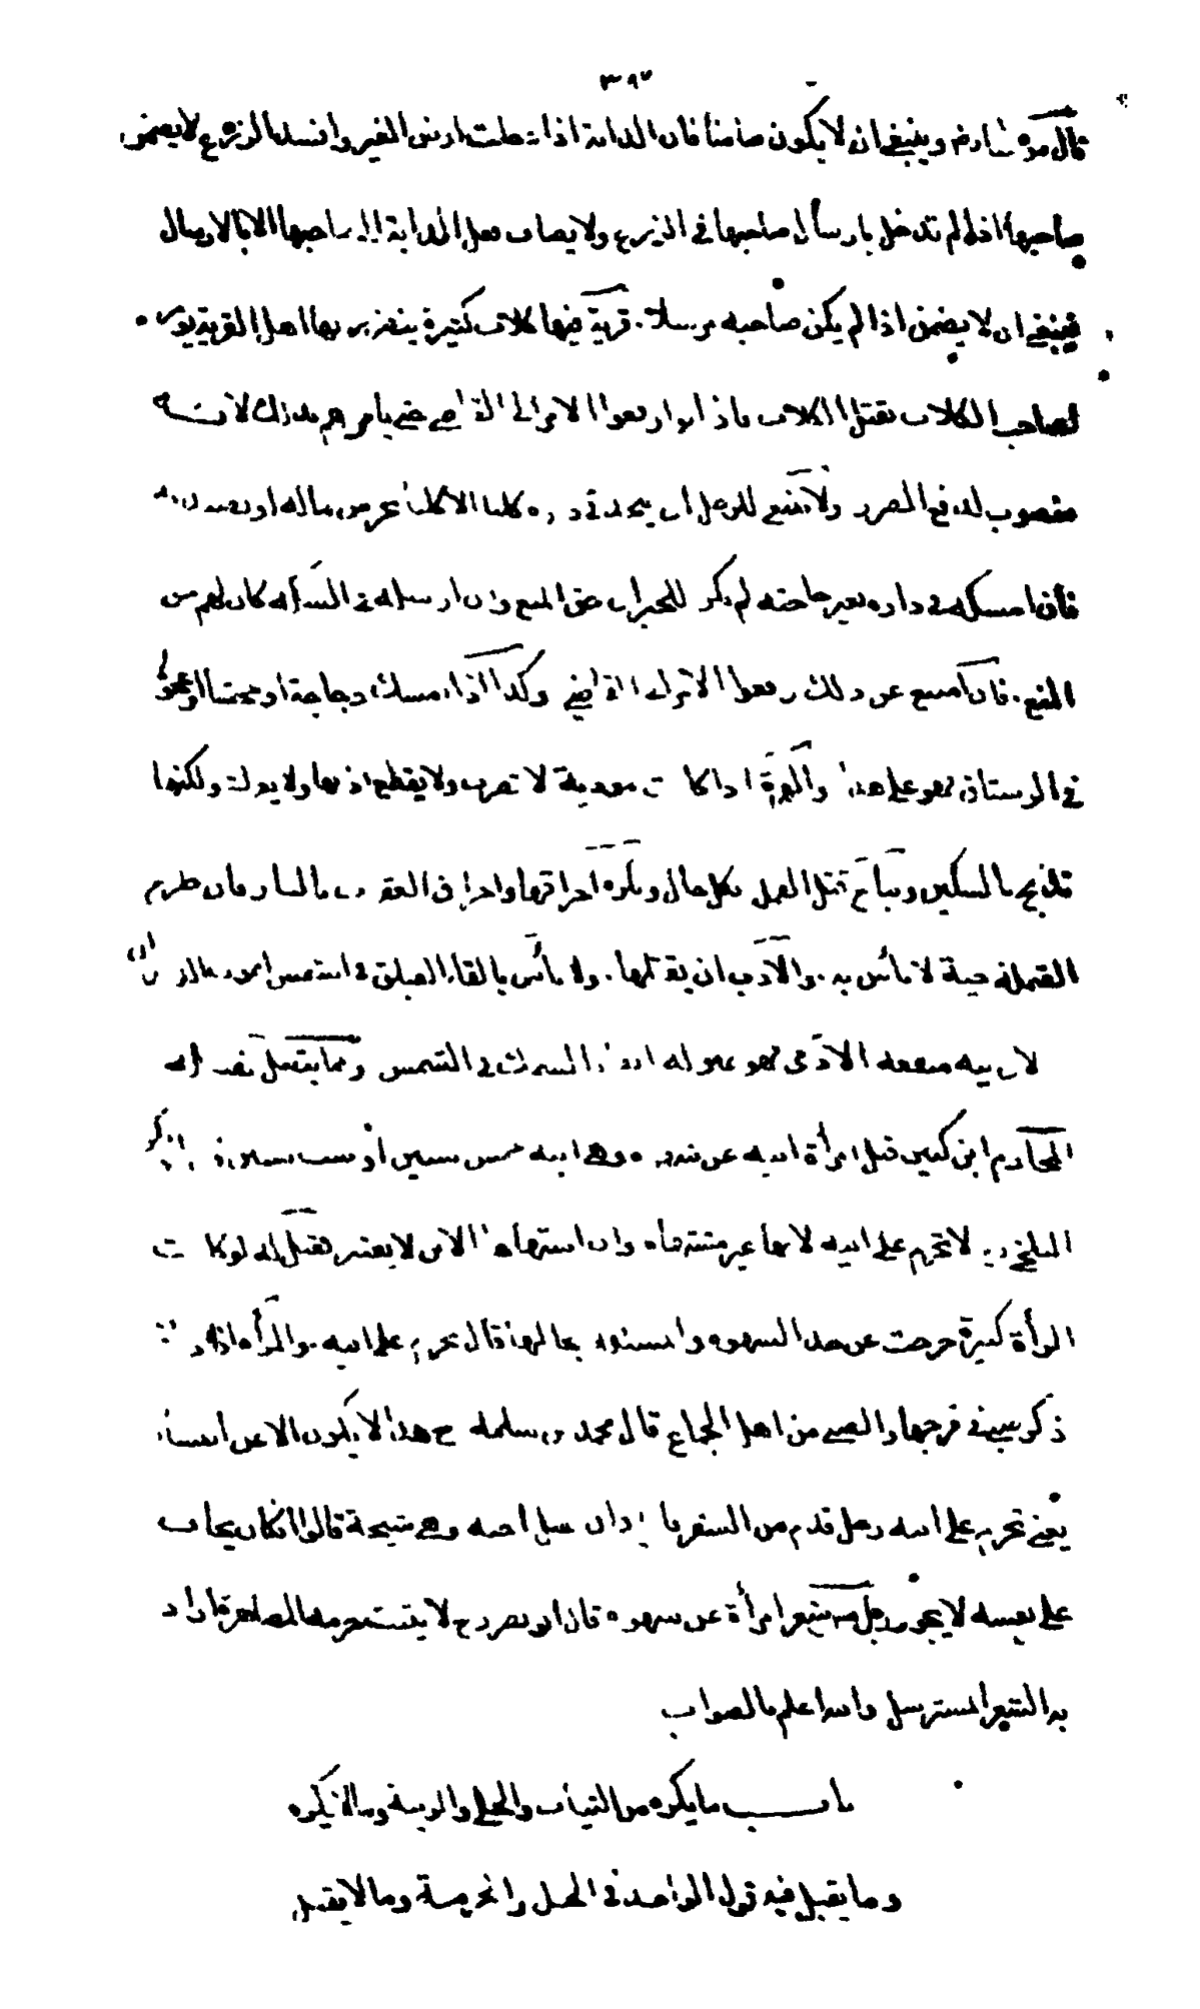 ٣٩٧
قال مو وينبغي ان لا يكون ضامنا فان الدابة اذا دخلت ارض الغير وافسد الزرع لا يضمن
صاحبها اذا لم تدخل بارسال صاحبها في الزرع ولا يضاف فعل الدابة الى صاحبها الا بالارسال
فينبغي ان لا يضمن اذا لم يكن صاحبه مرسلا . قرية فيها كلاب كثيرة يتضرر بها اهل القرية يؤمر
لصاحب الكلاب بقتل الكلاب فاذا ابوا رفعوا الامر الى القاضي حتى يامرهم بذلك لانه
منصوب لدفع الضرر ولا ينبغي للرجل ان يتخذ في داره كلبا الا كلبا يحرس ماله او
فان امسكه في داره بغير حاجته لم يكن للجيران حق المنع وان ارسله في السكة كان لهم حق
المنع . فان امتنع عن ذلك رفعوا الامر الى القاضي وكذا اذا امسك دجاجة او جحشا او عجولا
في الرستاق فهو على هذا والهرة اذا كانت موذية لا تضرب ولا يقطع اذنها ولا ولكنها
تذبح بالسكين ويباح قتل النمل بكل حال ويكره احراقها واحراق العقرب بالنار فان طرح
القملة حية لا باس به . والادب ان يقتلها . ولا باس بالقاء الفيلق في الشمس ليموت الديدان
لان فيه منفعة الادمي فهو بمنزلة القاء السمك في الشمس ومما يتصل بهذه
المحارم ابن كبير قبل امراة ابيه عن شهوة وهي ابنة خمس سنين او ست سنين ذكر
البلخي لا تحرم على ابيه لانها غير مشتهاة وان اشتهاها الابن لا يعتبر فقيل له لو كانت
المرأة كبيرة خرجت عن حد الشهوة والمسئلة بحالها قال تحرم على ابيه . والمرأة اذا ادخلت
ذكر صبي في فرجها والصبي من اهل الجماع قال محمد بن سلمة رح هذا لا يكون الا عن انتشار
يعني تحرم على ابيه رجل قدم من السفر فاراد ان يقبل اخته وهي شيخة قالوا ان كان يخاف
على نفسه لا يجوز رجل مس شعر امرأة عن شهوة قال ابو نصر رح لا يثبت حرمة المصاهرة اراد
به الشعر المسترسل والله اعلم بالصواب
باب ما يكره من الثياب والحلي والزينة وما لا يكره
وما يقبل فيه قول الواحد في الحل والحرمة وما لا يقبل